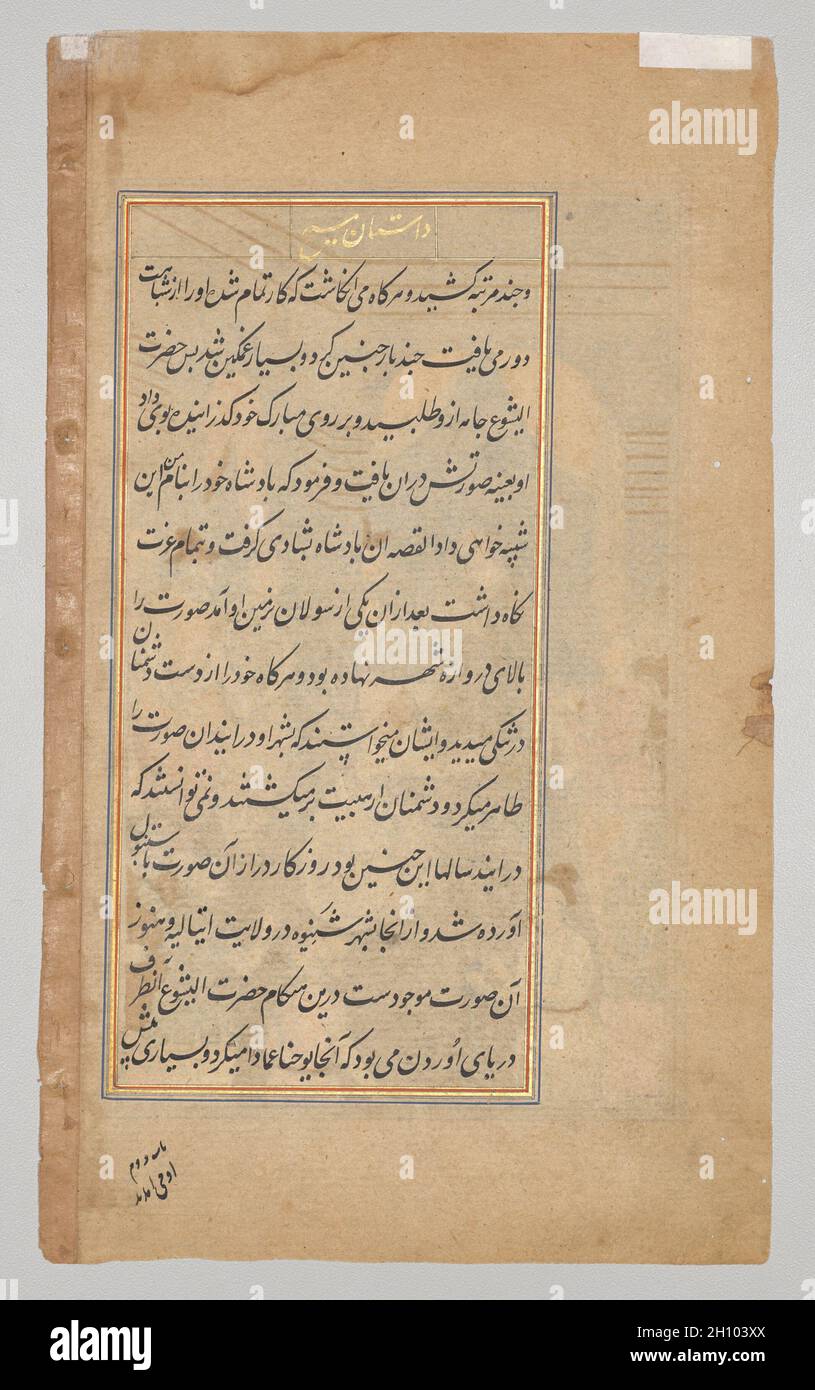 داستان مسیح
وجند مرتبه کشید و هرکاه می انکاشت که کار تمام شد او را از شباهت
دور می یافت جند بار جنین کرد و بسیار غمکین شد بس حضرت
الیشوع جامه از و طلبید و بر روی مبارک خود کذرانیده بوی داد
او بعینه صورتش دران یافت و فرمود که بادشاه خود را بنام من این
شبیه خواهی داد القصه ان بادشاه بشادی کرفت و بتمام عزت
نکاه داشت بعد ازان یکی از سولان بزمین او آمد صورت را
بالای دروازه شهر نهاده بود و هرکاه خود را از دست دشمنان
در تنکی میدید و ایشان میخواستند که بشهر او درایند ان صورت را
ظاهر میکرد و دشمنان از هیبت بر میکشتند و نمی توانستند که
درایند سالها این جنین بود روزکار دراز آن صورت باستنبول
آورده شد و از انجا بشهر شنیوه در ولایت ایتالیه و هنوز
آن صورت موجودست درین هنکام حضرت الیشوع آنطرف
دریای اُوردن می بود که آنجا یوحنا عماد میکرد و بسیاری پیش
alamy
Image ID: 2H103XX
www.alamy.com